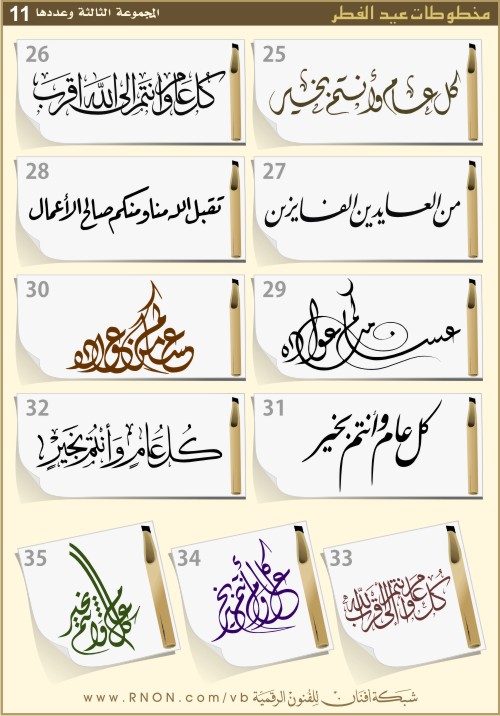 مخطوطات عيد الفطر
المجموعة الثالثة وعددها 11
25
كل عام وأنتم بخير
26
كل عام وانتم الى الله اقرب
27
من العايدين الفايزين
28
تقبل الله منا ومنكم صالح الأعمال
29
عساكم من عواده
30
عساكم من عواده
31
كل عام وانتم بخير
32
كُل عَامٍ وَأَنْتُم بِخَيْرٍ
33
كل عام وأنتم الى الله أقرب
34
كل عام وأنتم بخير
35
كل عام وأنتم بخير
شبكة افنان للفنون الرقمية www.RNON.com/vb